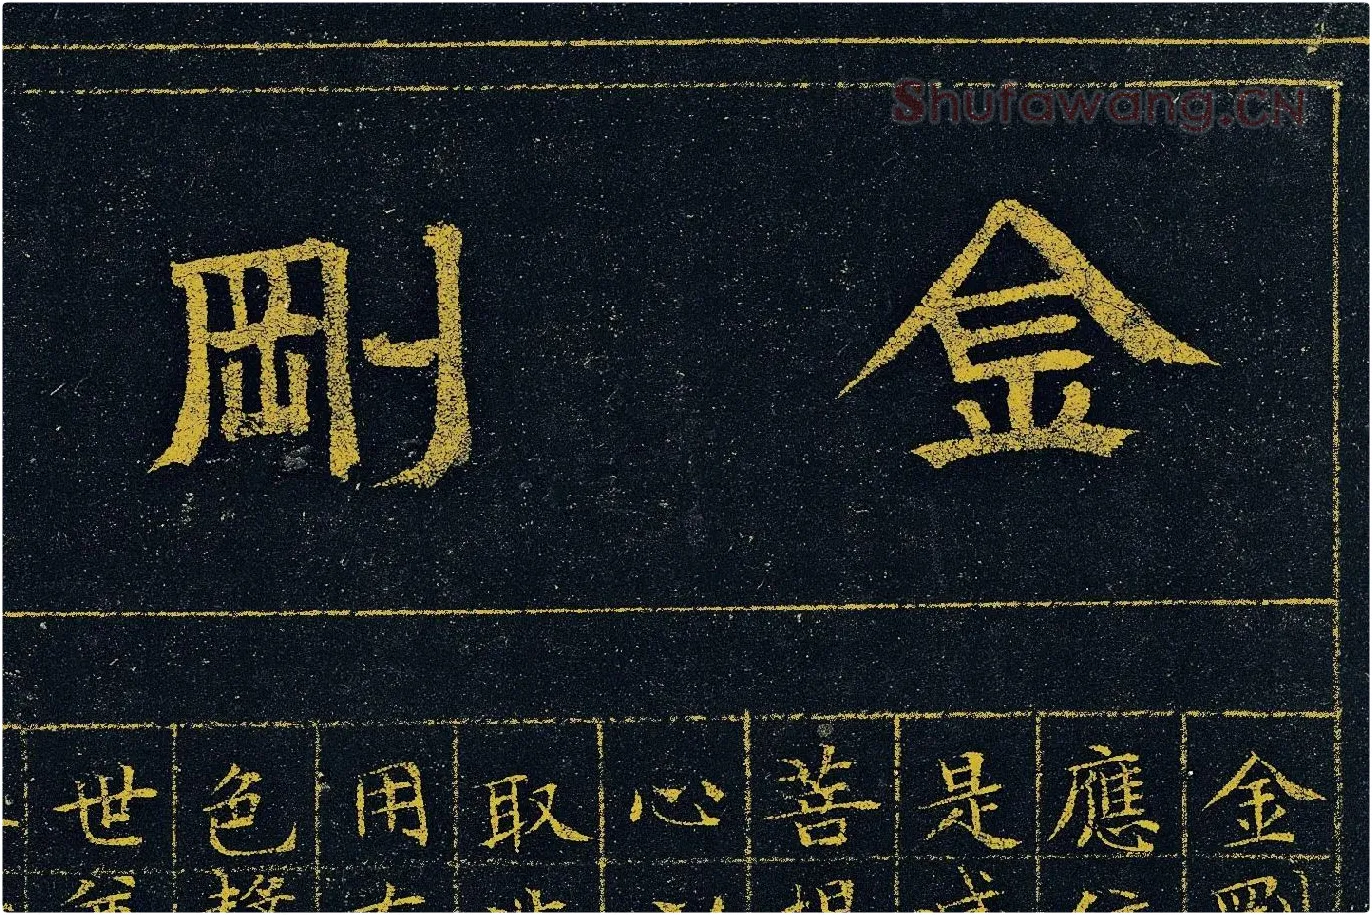 Shufawang.CN
金剛
金剛
應
是
菩提
心
取
用
色
世